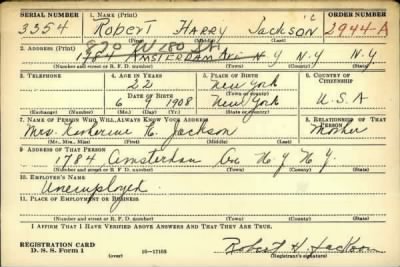 SERIAL NUMBER 1. NAME (Print) ORDER NUMBER
3354 ROBERT HARRY JACKSON 2944-A
(First) (Middle) (Last)
2. ADDRESS (Print)
820 W 180 St.
1784 AMSTERDAM AVE N.Y. N.Y. N.Y.
(Number and street or R. F. D. number) (Town) (County) (State)
3. TELEPHONE 4. AGE IN YEARS 5. PLACE OF BIRTH 6. COUNTRY OF CITIZENSHIP
22 New York
(Town or county)
DATE OF BIRTH
6 9 1908 New York U.S.A
(Exchange) (Number) (Mo.) (Day) (Yr.) (State or country)
7. NAME OF PERSON WHO WILL ALWAYS KNOW YOUR ADDRESS 8. RELATIONSHIP OF THAT PERSON
Mrs. Katherine E. Jackson Mother
(Mr., Mrs., Miss) (First) (Middle) (Last)
9. ADDRESS OF THAT PERSON
1784 Amsterdam Ave N.Y. N.Y.
(Number and street or R. F. D. number) (Town) (County) (State)
10. EMPLOYER'S NAME
Unemployed
11. PLACE OF EMPLOYMENT OR BUSINESS
(Number and street or R. F. D. number) (Town) (County) (State)
I AFFIRM THAT I HAVE VERIFIED ABOVE ANSWERS AND THAT THEY ARE TRUE.
REGISTRATION CARD
D. S. S. Form 1 16-17105 Robert H. Jackson
(Registrant's signature)